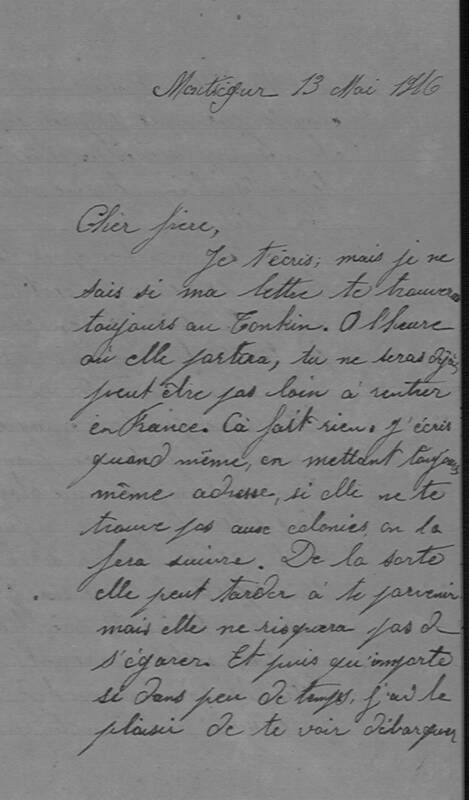 Montségur 13 Mai 1916
Cher frère,
Je t'écris; mais je ne
sais si ma lettre te trouvera
toujours au Tonkin. A l'heure
où elle partira, tu ne seras déjà
peut être pas loin à rentrer
en France. Cà fait rien. J'écris
quand même, en mettant toujours
même adresse, si elle ne te
trouve pas aux colonies, on la
fera suivre. De la sorte
elle peut tarder à te parvenir
mais elle ne risquera pas de
s'égarer. Et puis qu'importe
si dans peu de temps, j'ai le
plaisir de te voir débarquer